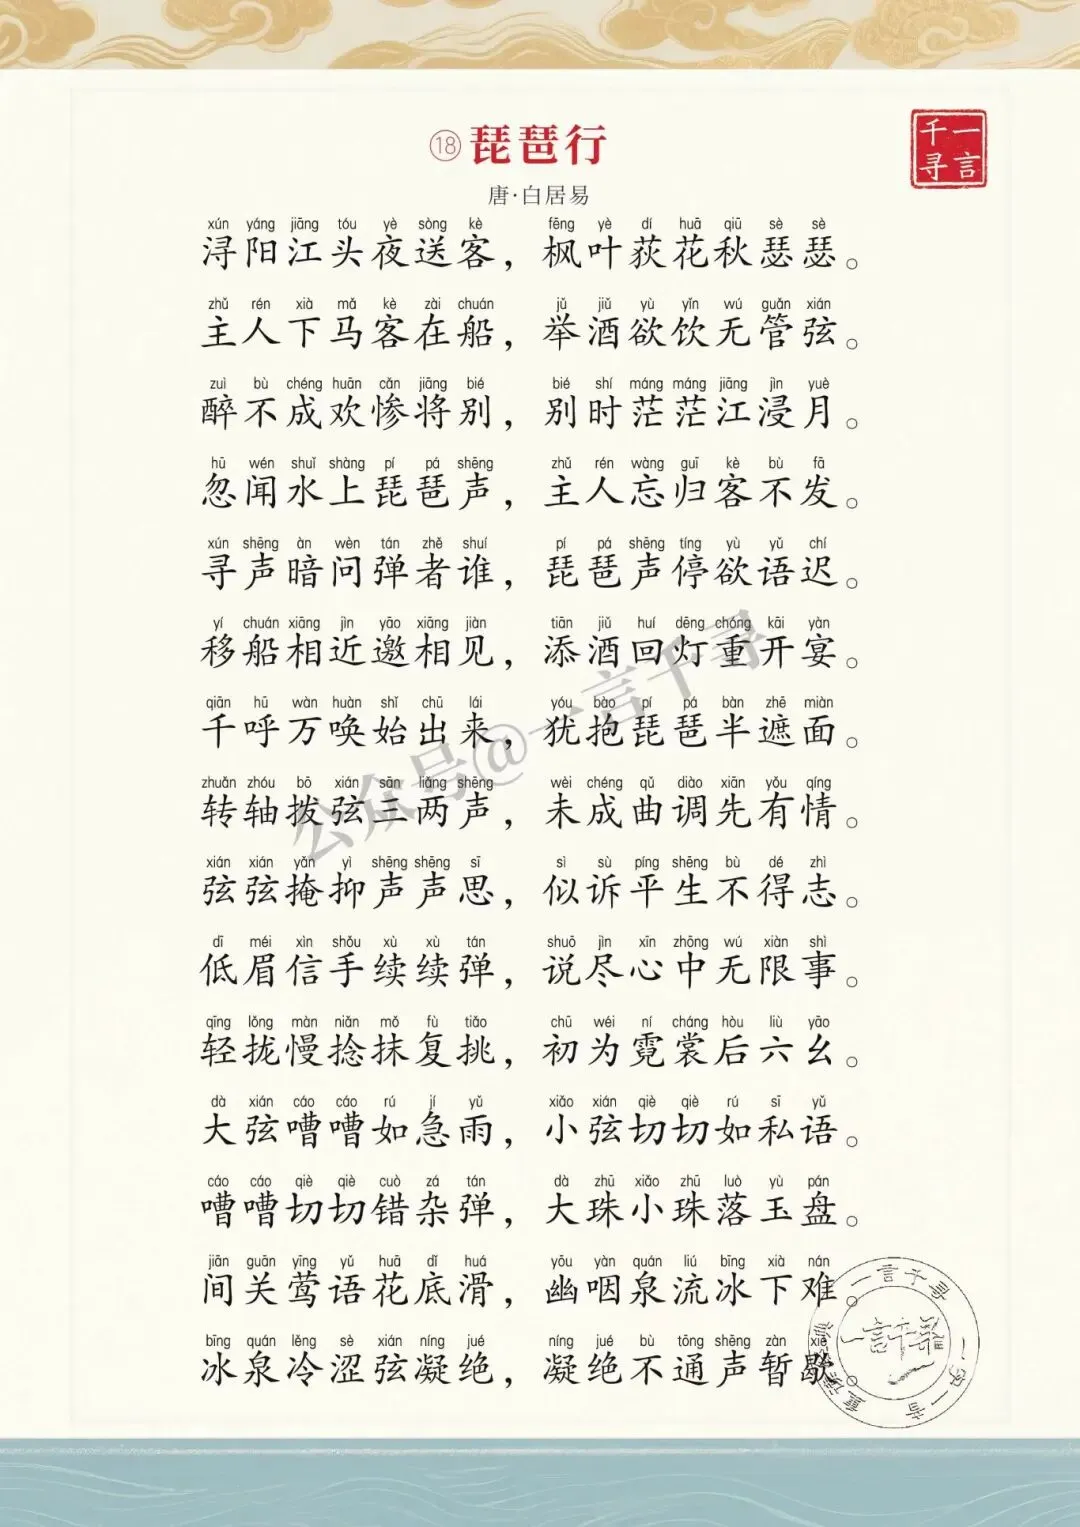 ⑱琵琶行
一言千寻
唐·白居易
xún yáng jiāng tóu yè sòng kè fēng yè dí huā qiū sè sè
浔阳江头夜送客，枫叶荻花秋瑟瑟。
zhǔ rén xià mǎ kè zài chuán jǔ jiǔ yù yǐn wú guǎn xián
主人下马客在船，举酒欲饮无管弦。
zuì bù chéng huān cǎn jiāng bié bié shí máng máng jiāng jìn yuè
醉不成欢惨将别，别时茫茫江浸月。
hū wén shuǐ shàng pí pá shēng zhǔ rén wàng guī kè bù fā
忽闻水上琵琶声，主人忘归客不发。
xún shēng àn wèn tán zhě shuí pí pá shēng tíng yù yǔ chí
寻声暗问弹者谁，琵琶声停欲语迟。
yí chuán xiāng jìn yāo xiāng jiàn tiān jiǔ huí dēng chóng kāi yàn
移船相近邀相见，添酒回灯重开宴。
qiān hū wàn huàn shǐ chū lái yóu bào pí pá bàn zhē miàn
千呼万唤始出来，犹抱琵琶半遮面。
zhuǎn zhóu bō xián sān liǎng shēng wèi chéng qǔ diào xiān yǒu qíng
转轴拨弦三两声，未成曲调先有情。
xián xián yǎn yì shēng shēng sī sì sù píng shēng bù dé zhì
弦弦掩抑声声思，似诉平生不得志。
dī méi xìn shǒu xù xù tán shuō jìn xīn zhōng wú xiàn shì
低眉信手续续弹，说尽心中无限事。
qīng lǒng màn niǎn mǒ fù tiǎo chū wéi ní cháng hòu liù yāo
轻拢慢捻抹复挑，初为霓裳后六幺。
dà xián cáo cáo rú jí yǔ xiǎo xián qiè qiè rú sī yǔ
大弦嘈嘈如急雨，小弦切切如私语。
cáo cáo qiè qiè cuò zá tán dà zhū xiǎo zhū luò yù pán
嘈嘈切切错杂弹，大珠小珠落玉盘。
jiān guān yīng yǔ huā dǐ huá yōu yàn quán liú bīng xià nán
间关莺语花底滑，幽咽泉流冰下难。
bīng quán lěng sè xián níng jué níng jué bù tōng shēng zàn xiē
冰泉冷涩弦凝绝，凝绝不通声暂歇。
公众号@一言千寻
一言千寻
一字一音
一言千寻